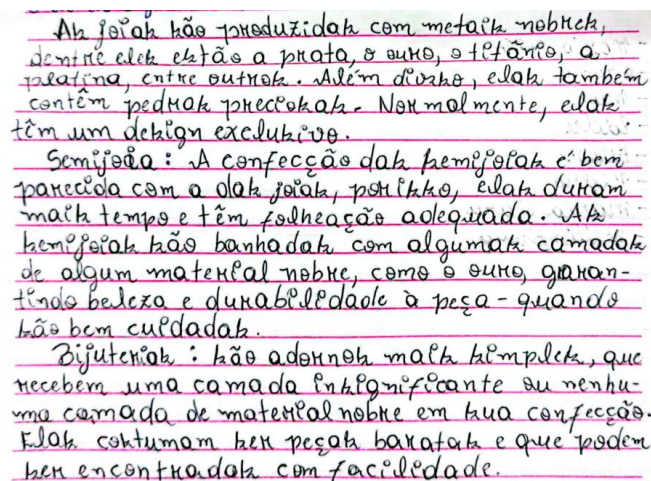 As joias são produzidas com metais nobres,
dentre eles estão a prata, o ouro, o titânio, a
platina, entre outros. Além disso, elas também
contêm pedras preciosas. Normalmente, elas
têm um design exclusivo.
Semijoia: A confecção das semijoias é bem
parecida com a das joias, por isso, elas duram
mais tempo e têm folheação adequada. As
semijoias são banhadas com algumas camadas
de algum material nobre, como o ouro, garan-
tindo beleza e durabilidade à peça - quando
são bem cuidadas.
Bijuterias: são adornos mais simples, que
recebem uma camada insignificante ou nenhu-
ma camada de material nobre em sua confecção.
Elas costumam ser peças baratas e que podem
ser encontradas com facilidade.